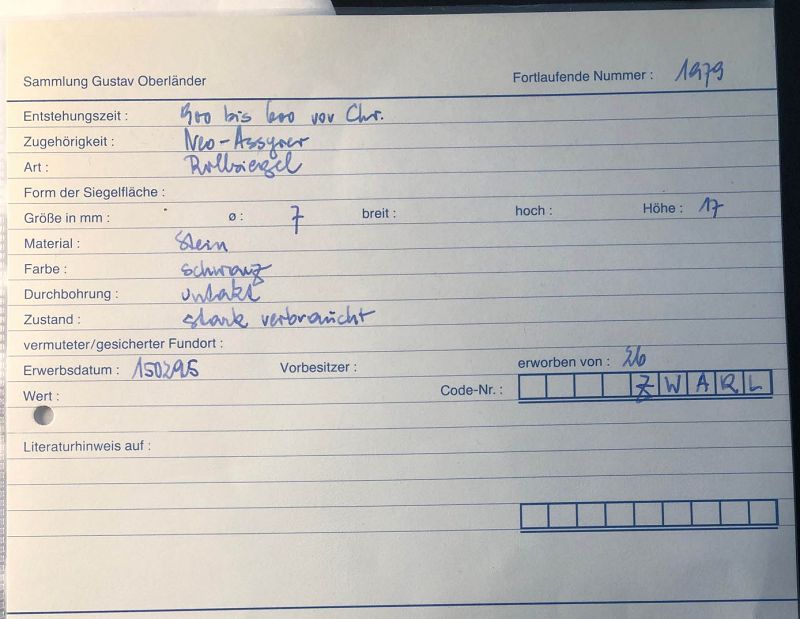 Sammlung Gustav Oberländer Fortlaufende Nummer : 1979
Entstehungszeit : 900 bis 600 vor Chr.
Zugehörigkeit : Neo-Assyrer
Art : Rollsiegel
Form der Siegelfläche :
Größe in mm : ø : 7 breit : hoch : Höhe : 17
Material : Stein
Farbe : schwarz
Durchbohrung : intakt
Zustand : stark verbraucht
vermuteter/gesicherter Fundort :
Erwerbsdatum : 150295 Vorbesitzer : erworben von : 26
Wert : Code-Nr. : ZWARL
Literaturhinweis auf :